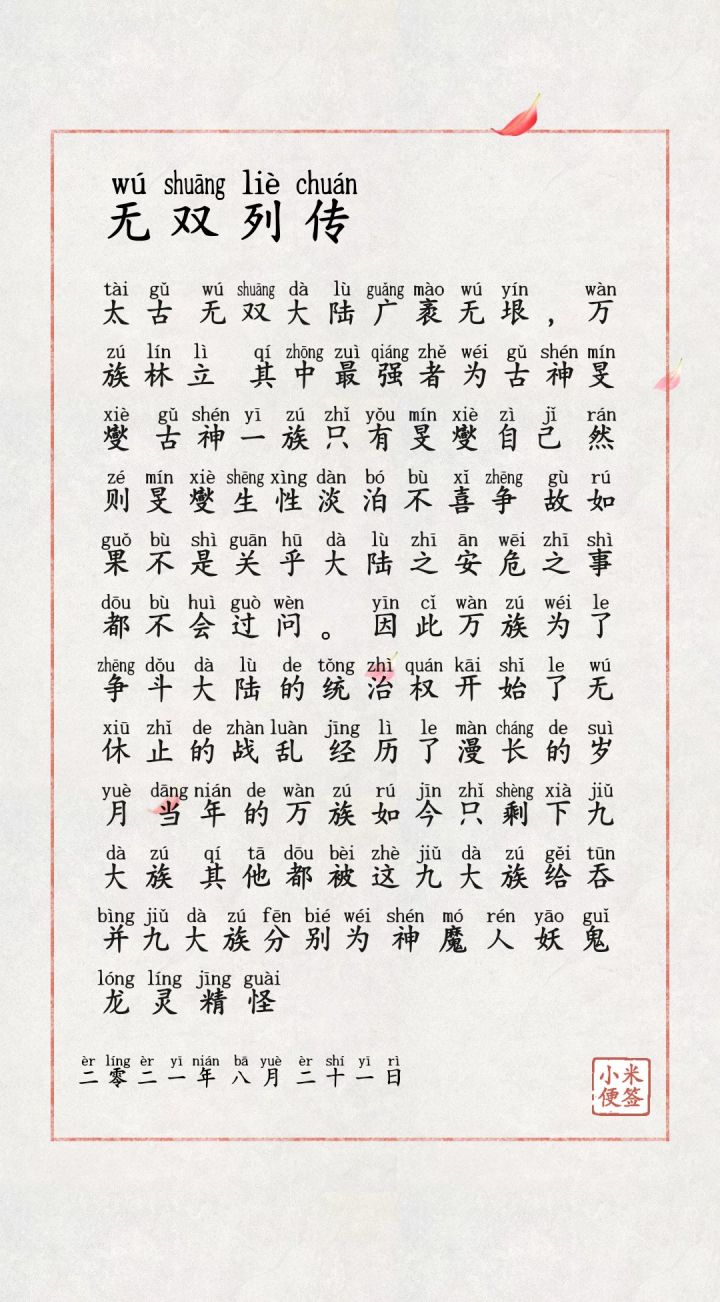 wú shuāng liè chuán
无双列传
tài gǔ wú shuāng dà lù guǎng mào wú yín wàn
太古 无双大陆广袤无垠，万
zú lín lì qí zhōng zuì qiáng zhě wéi gǔ shén mín
族林立 其中最强者为古神旻
xiè gǔ shén yī zú zhǐ yǒu mín xiè zì jǐ rán
燮 古神一族只有旻燮自己 然
zé mín xiè shēng xìng dàn bó bù xǐ zhēng gù rú
则旻燮生性淡泊不喜争 故如
guǒ bù shì guān hū dà lù zhī ān wēi zhī shì
果不是关乎大陆之安危之事
dōu bù huì guò wèn yīn cǐ wàn zú wéi le
都不会过问。 因此万族为了
zhēng dǒu dà lù de tǒng zhì quán kāi shǐ le wú
争斗大陆的统治权开始了无
xiū zhǐ de zhàn luàn jīng lì le màn cháng de suì
休止的战乱 经历了漫长的岁
yuè dāng nián de wàn zú rú jīn zhǐ shèng xià jiǔ
月 当年的万族如今只剩下九
dà zú qí tā dōu bèi zhè jiǔ dà zú gěi tūn
大族 其他都被这九大族给吞
bìng jiǔ dà zú fēn bié wéi shén mó rén yāo guǐ
并九大族分别为 神 魔 人 妖 鬼
lóng líng jīng guài
龙 灵 精 怪
èr líng èr yī nián bā yuè èr shí yī rì
二零二一年八月二十一日
小米
便签